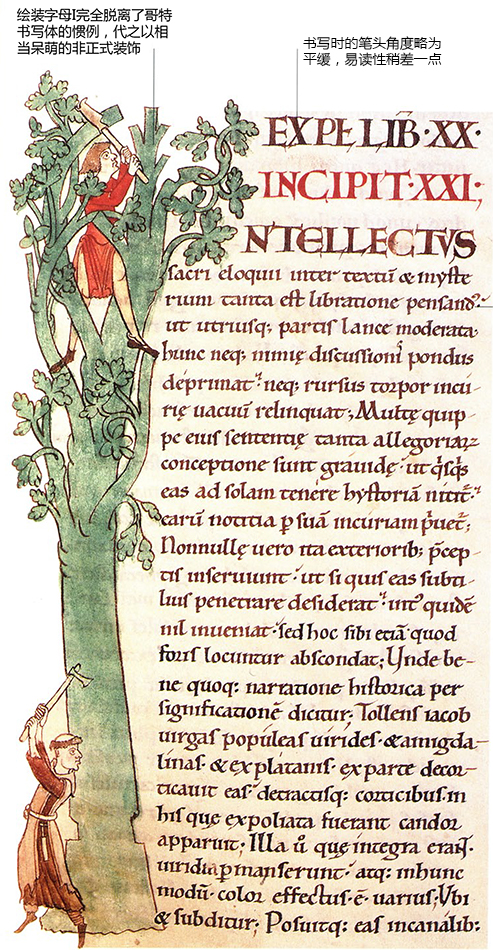 绘装字母I完全脱离了哥特
书写体的惯例，代之以相
当呆萌的非正式装饰
书写时的笔头角度略为
平缓，易读性稍差一点
EXPL LIB·XX·
INCIPIT·XXI·
NTELLECTVS
sacri eloquii inter textū & myste
rium tanta est libratione pensand
ut utriusq; partis lance moderata
hunc neq; nimię discussioni pondus
deprimat· neq; rursus torpor incu
rię vacuū relinquat; Multę quip
pe eius sententię tanta allegoriarū
conceptione sunt gravidę· ut
eas ad solam tenere hystoriā nitit
earū notitia p suā incuriam
Nonnullę uero ita exteriorib; pcep
tis inserviunt· ut si quis eas subti
lius penetrare desiderat· int quidē
nil inveniat· sed hoc sibi etiā quod
foris locuntur abscondat; Unde be-
ne quoq; narratione historica per
significationē dicitur; Tollens iacob
virgas populeas virides· & amigda-
linas· & ex platanis· ex parte decor-
ticavit eas· detractisq; corticibus· in
his quę expoliata fuerant candor
apparuit· Illa ū quę integra erant
viridia pmanserunt· atq; in hunc
modū· color effectus· ē· varius; Ubi
& subditur; Posuitq; eas in canalib;